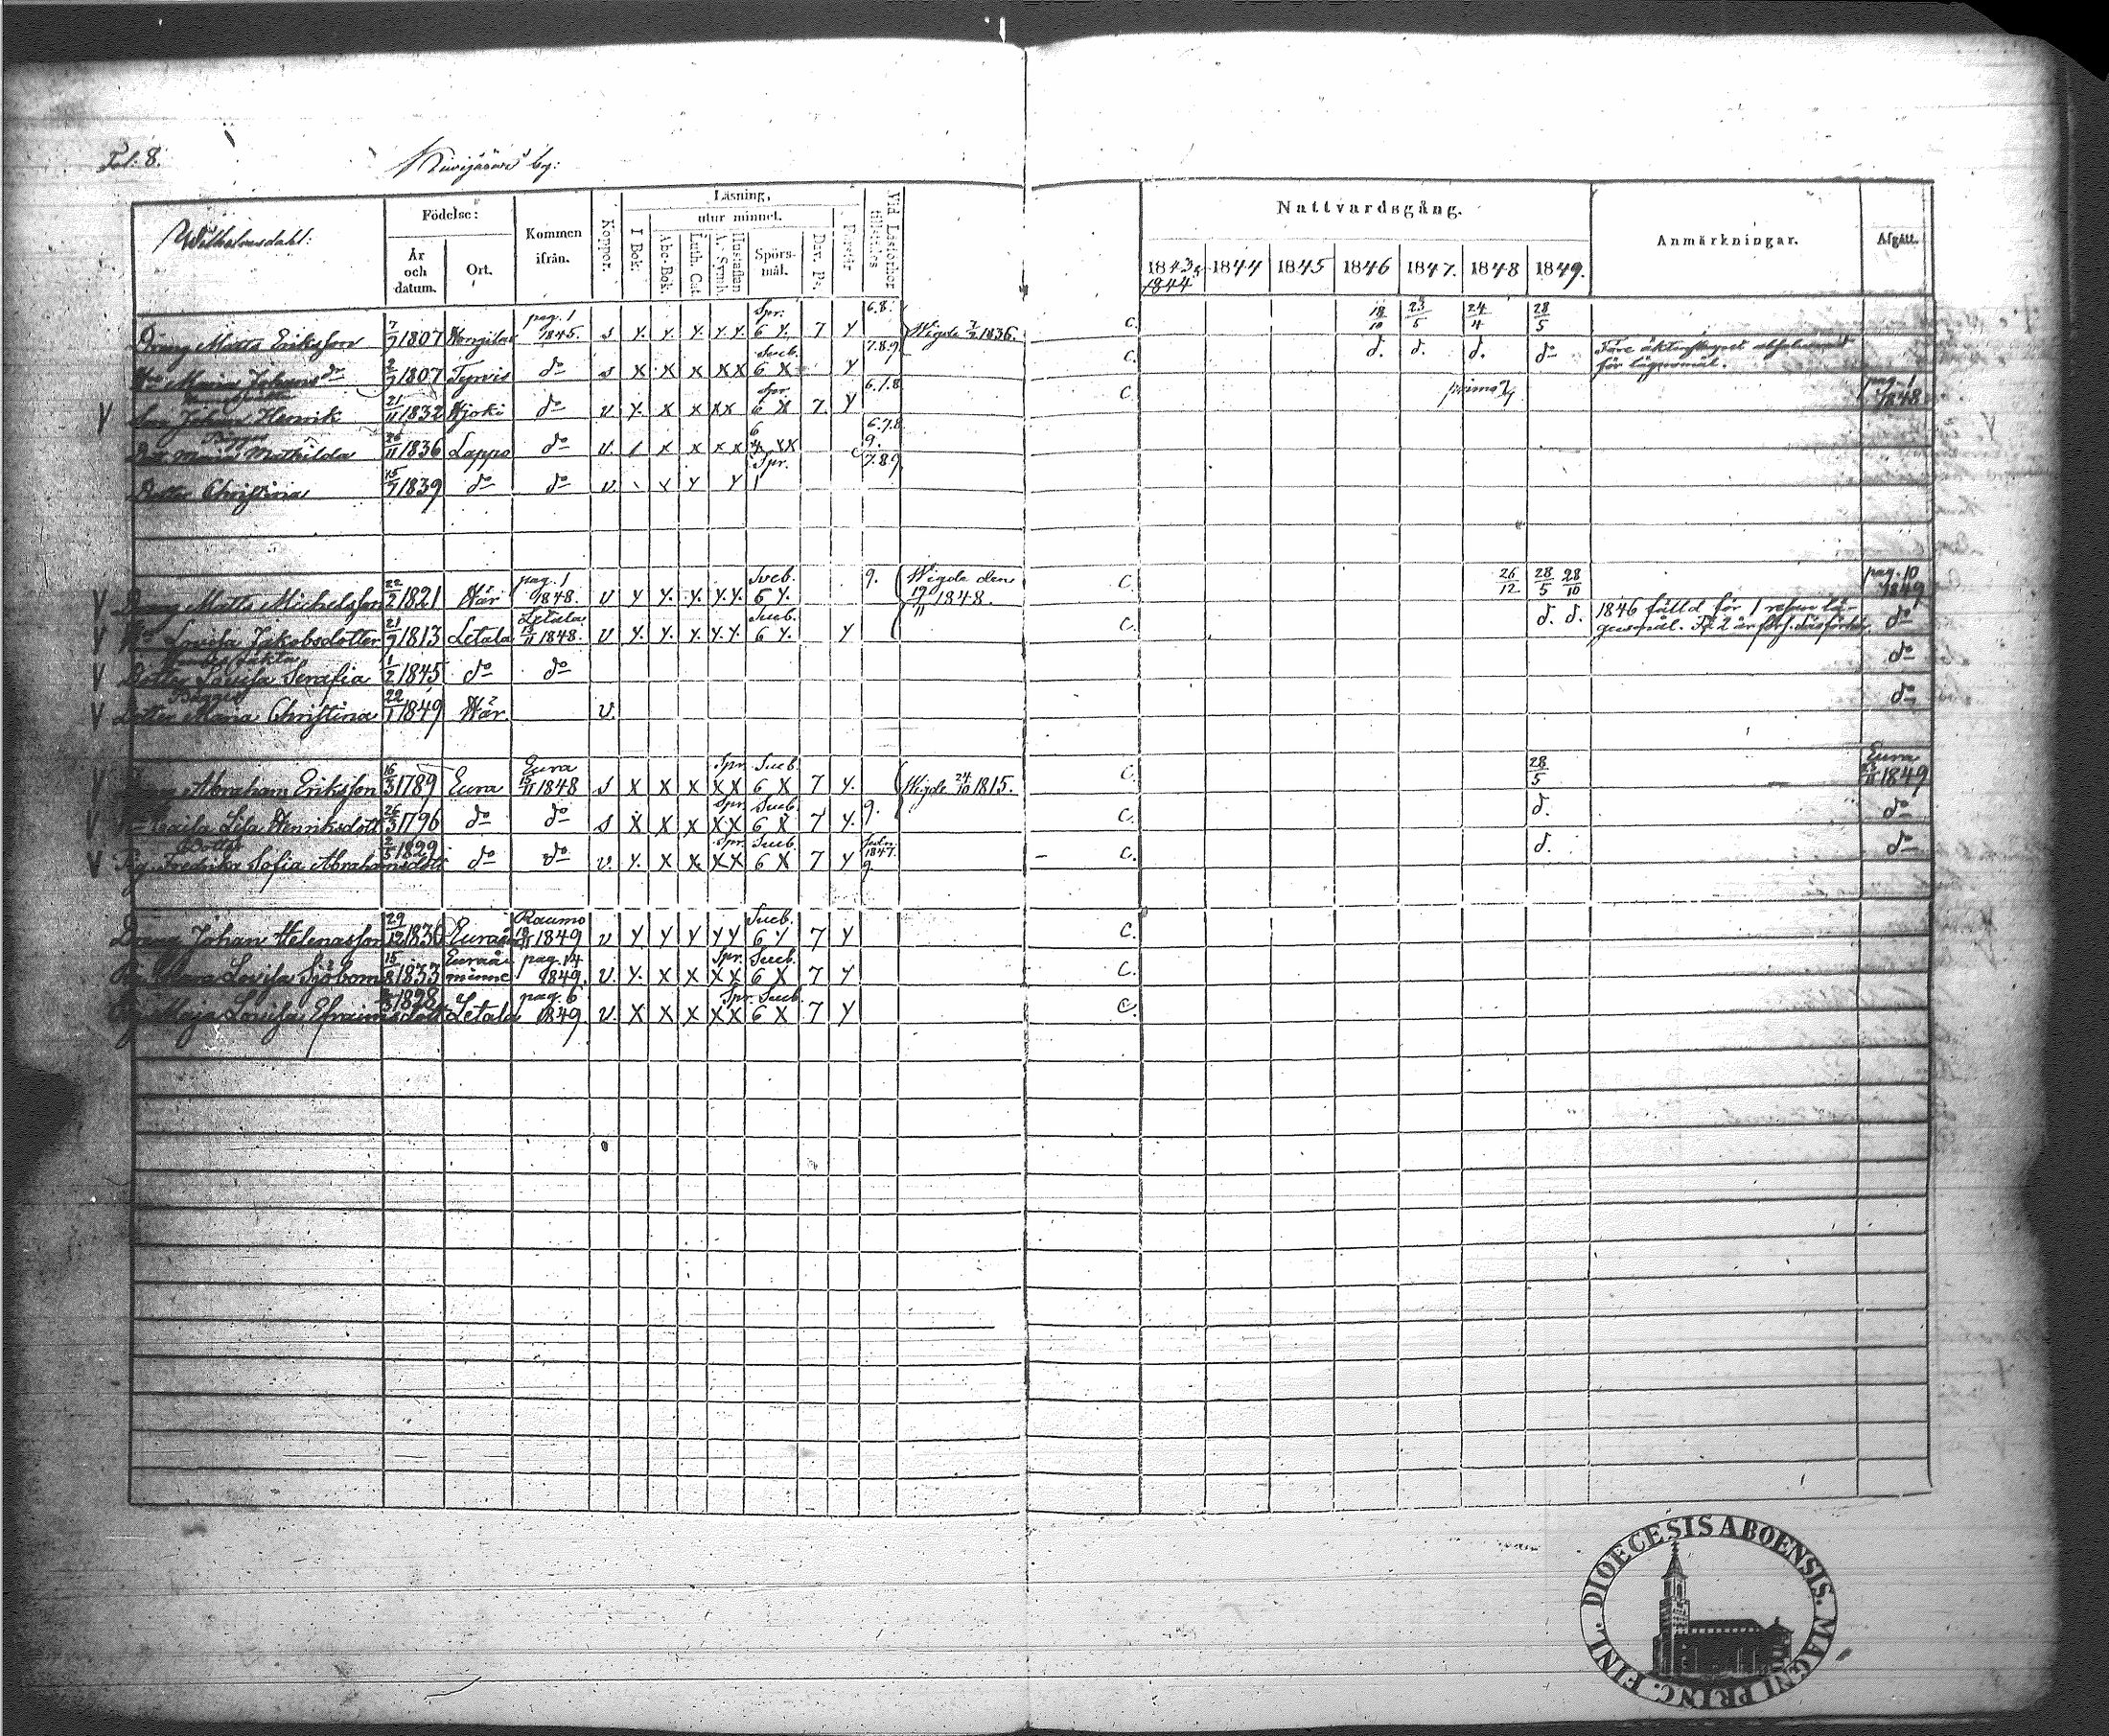 Fol: 8. by:
Wilhelmsdahl: Födelse: År och datum. Ort. Kommen ifrån. Koppor. Läsning, I Bok. utur minnet. Abc-Bok. Luth. Cat. Hustaflan A. Symb. Spörsmål. Dav. Ps. Förstår Vid Läsförhör tillstädes
Nattvardsgång. 1843 1844 1844 1845 1846 1847. 1848 1849. Anmärkningar. Afgått.
Dräng Matts Eriksson 7/7 1807 pag. 1 1845. s y. y. y. y. y. Spr. 6 y. 7 y 6.8. Wigde 1836. C. 18/10 23/5 24/4 28/5
Maria Johans dr 2/7 1807 Tyrvis do s x x x x x Sveb. 6 x y 7.8.9 C. d. d. d. do Före äktenskapet
för lägersmål.
V Son Johan Henrik 21/11 1832 Hjoki do v. y. x x x x Spr 6 x 7. y 6.7.8 C primo pag. 1 1848
Dott. Maria Mathilda 26/11 1836 Lappo do v. x x x x 6 xx 6.7.8 9.
Dotter Christina 15/7 1839 do do v. Spr. 7.8.9
V Dräng Matts Michelsson 22/2 1821 Här pag. 1 1848. v y y. y. y. y. Sveb. 6 y. 9. Wigde den 19/11 1848. C. 26/12 28/5 28/10 pag. 10 1849
V Hu Lovisa Jakobsdotter 21/9 1813 Letala Letala 13/11 1848. v y. y. y. y. y. Sveb. 6 y. y C. d. d. 1846 fälld för 1 resan lä-
gersmål. do
V Dotter Lovisa Serafia 1/2 1845 do do do
V Dotter Maria Christina 22/1 1849 Här. v. do
V Dräng Abraham Eriksson 16/3 1789 Eura Eura 15/11 1848 s x x x x x Spr. Sveb. 6 x 7 y. Wigde 24/10 1815. C. 28/5 Eura 1849
V Hu Caisa Lisa Henriksdott 26/3 1796 do do s x x x x x Spr. Sveb. 6 x 7 y. 9. C. d. do
V Dotter
Pig. Fredrika Sofia Abrahamsdott 2/5 1829 do do v. y. x x x x Spr. Sveb. 6 x 7 y 1847. 9 C. d. do
Dräng Johan Helenasson 29/12 1830 Euraå Raumo 1849 v y y y y y Sveb. 6 y 7 y C.
Pig. Clara Lovisa Sjöbom 15/8 1833 Euraå minne pag. 14 1849. v. y. x x x x Spr. Sveb. 6 x 7 y C.
Pig. Maja Lovisa Efraimsdott 1828 Letala pag. 6 1849 v. x x x x x Spr. Sveb. 6 x 7 y C.
DIOECESIS ABOENSIS. MAGNI PRINC. FINL.